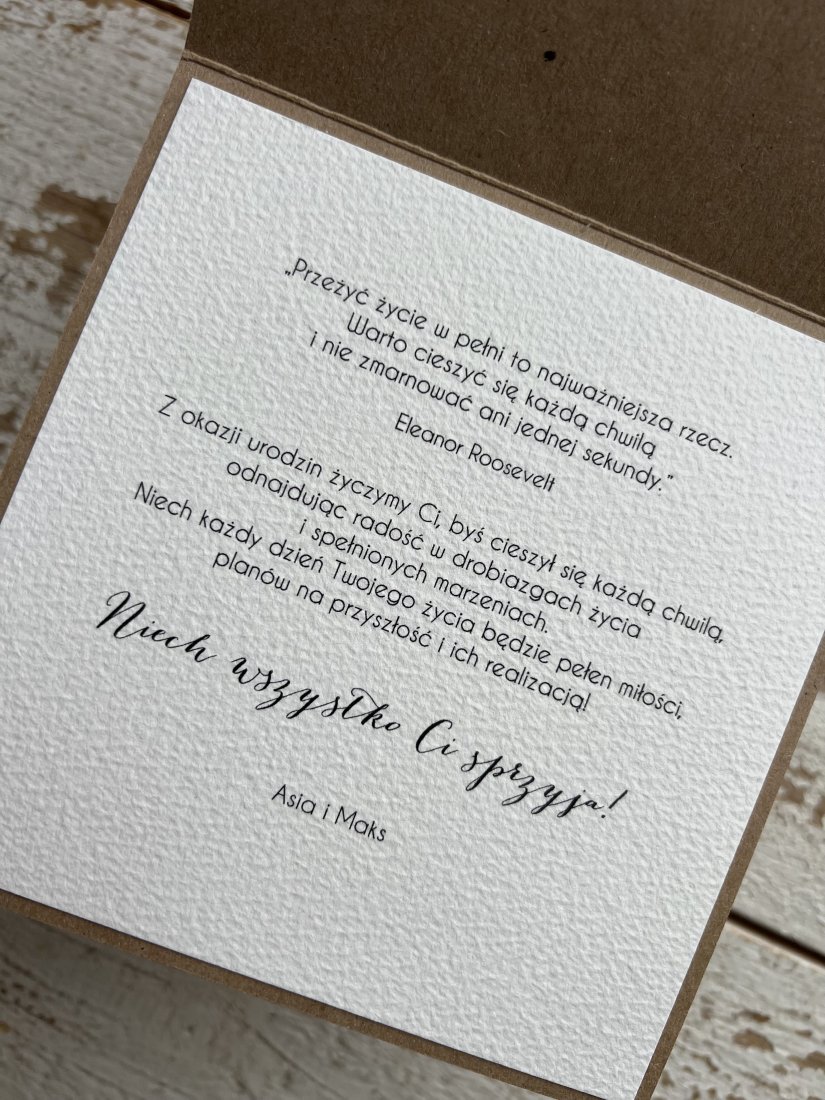 „Przeżyć życie w pełni to najważniejsza rzecz.
Warto cieszyć się każdą chwilą
i nie zmarnować ani jednej sekundy.”
Eleanor Roosevelt
Z okazji urodzin życzymy Ci, byś cieszył się każdą chwilą,
odnajdując radość w drobiazgach życia
i spełnionych marzeniach.
Niech każdy dzień Twojego życia będzie pełen miłości,
planów na przyszłość i ich realizacją!
Niech wszystko Ci sprzyja!
Asia i Maks